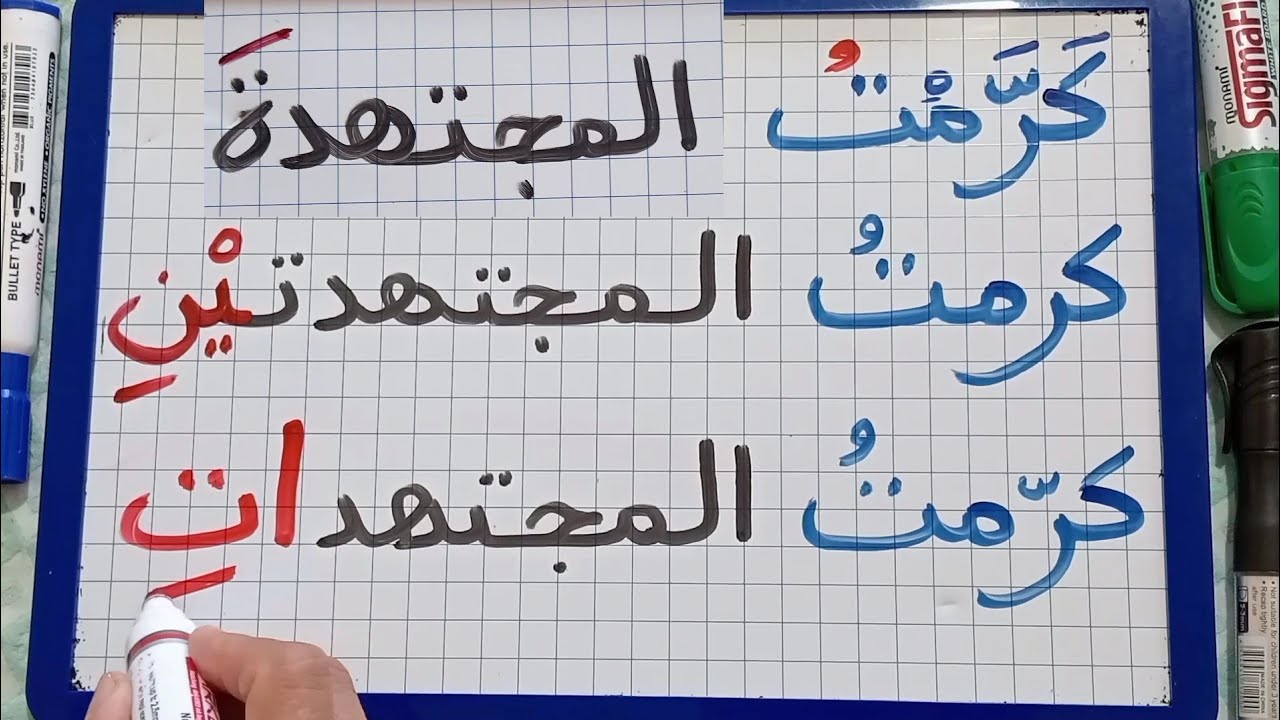 كَرَّمْتُ المجتهدةَ
كرمتُ المجتهدتيْنِ
كرّمتُ المجتهداتِ
BULLET TYPE
monami
MONAMI
SigmaFl